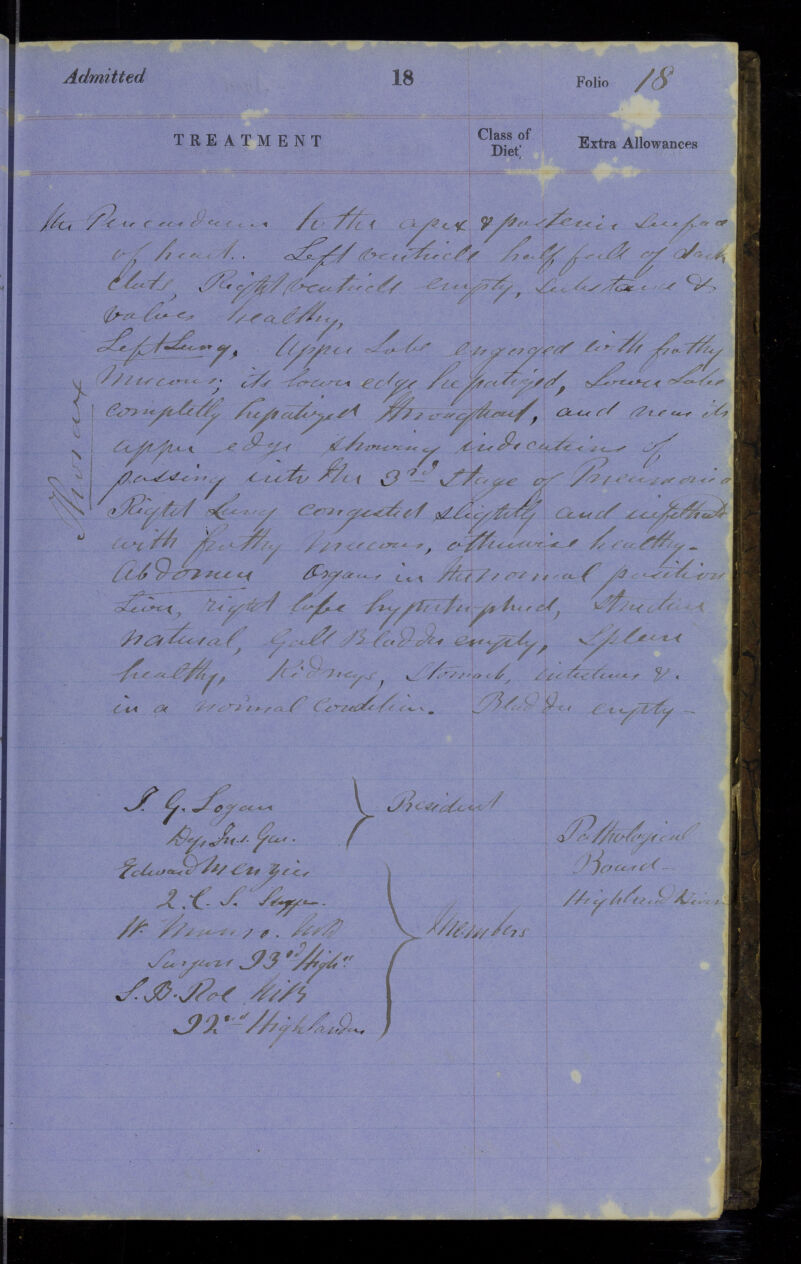 Admitted 18 Folio 18
TREATMENT Class of Diet Extra Allowances
the Pericardium to the apex & posterior surface
of heart. Left ventricle half full of dark
clots, Right ventricle empty, substance &
valves healthy,
Thorax
Left Lung. Upper Lobe engorged with frothy
mucous; its lower edge hepatized, Lower Lobe
completly hepatized throughout, and near its
upper edge showing indications of
passing into the 3rd Stage of Pneumonia
Right Lung congested slightly and infiltrated
with frothy mucous, otherwise healthy.
Abdomen Organs in the normal position
Liver, right lobe hypertrophied, structure
natural, Gall Bladder empty, Spleen
healthy, Kidneys, Stomach, intestines &.
in a normal condition. Bladder empty-
T. G. Logan President
Dep. Ins. Gen.
Pathological
Board
Highland
Edward Menzies
2. C. S.
W. Munro. MD Members
Surgeon 93rd High
S. B. Roe MB
92nd Highlanders